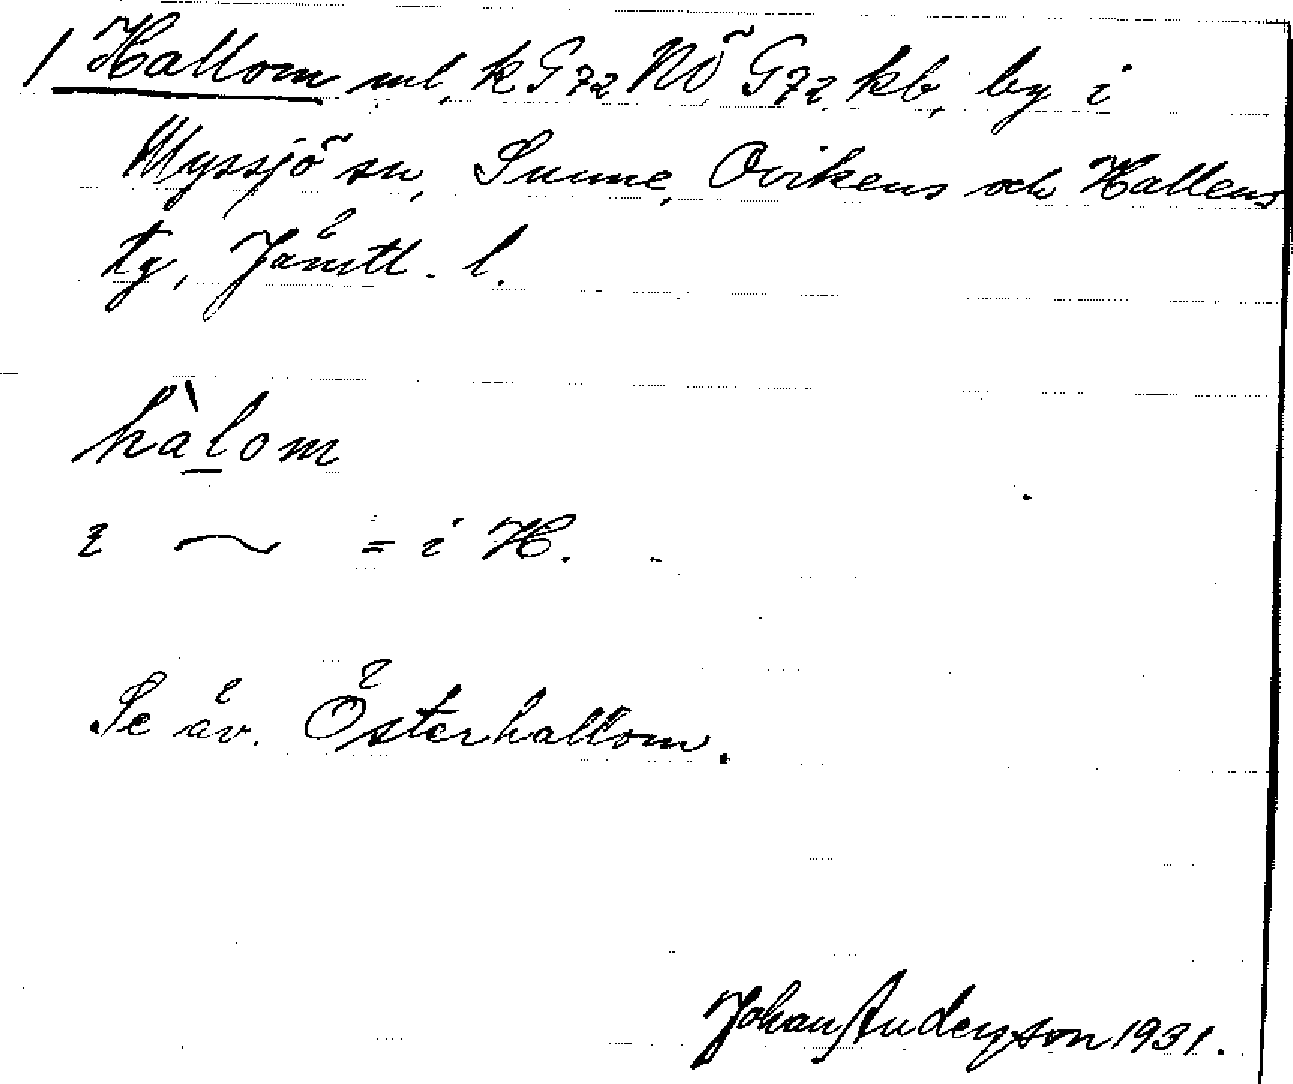 1 Hallom ml, k G72 NÖ G72 kb, by i
Myssjö sn, Sunne, Ovikens och Hallens
tg, Jämtl. l.
hàlom
i ~ = i H.
Se äv. Österhallom.
Johan Anderson 1931.